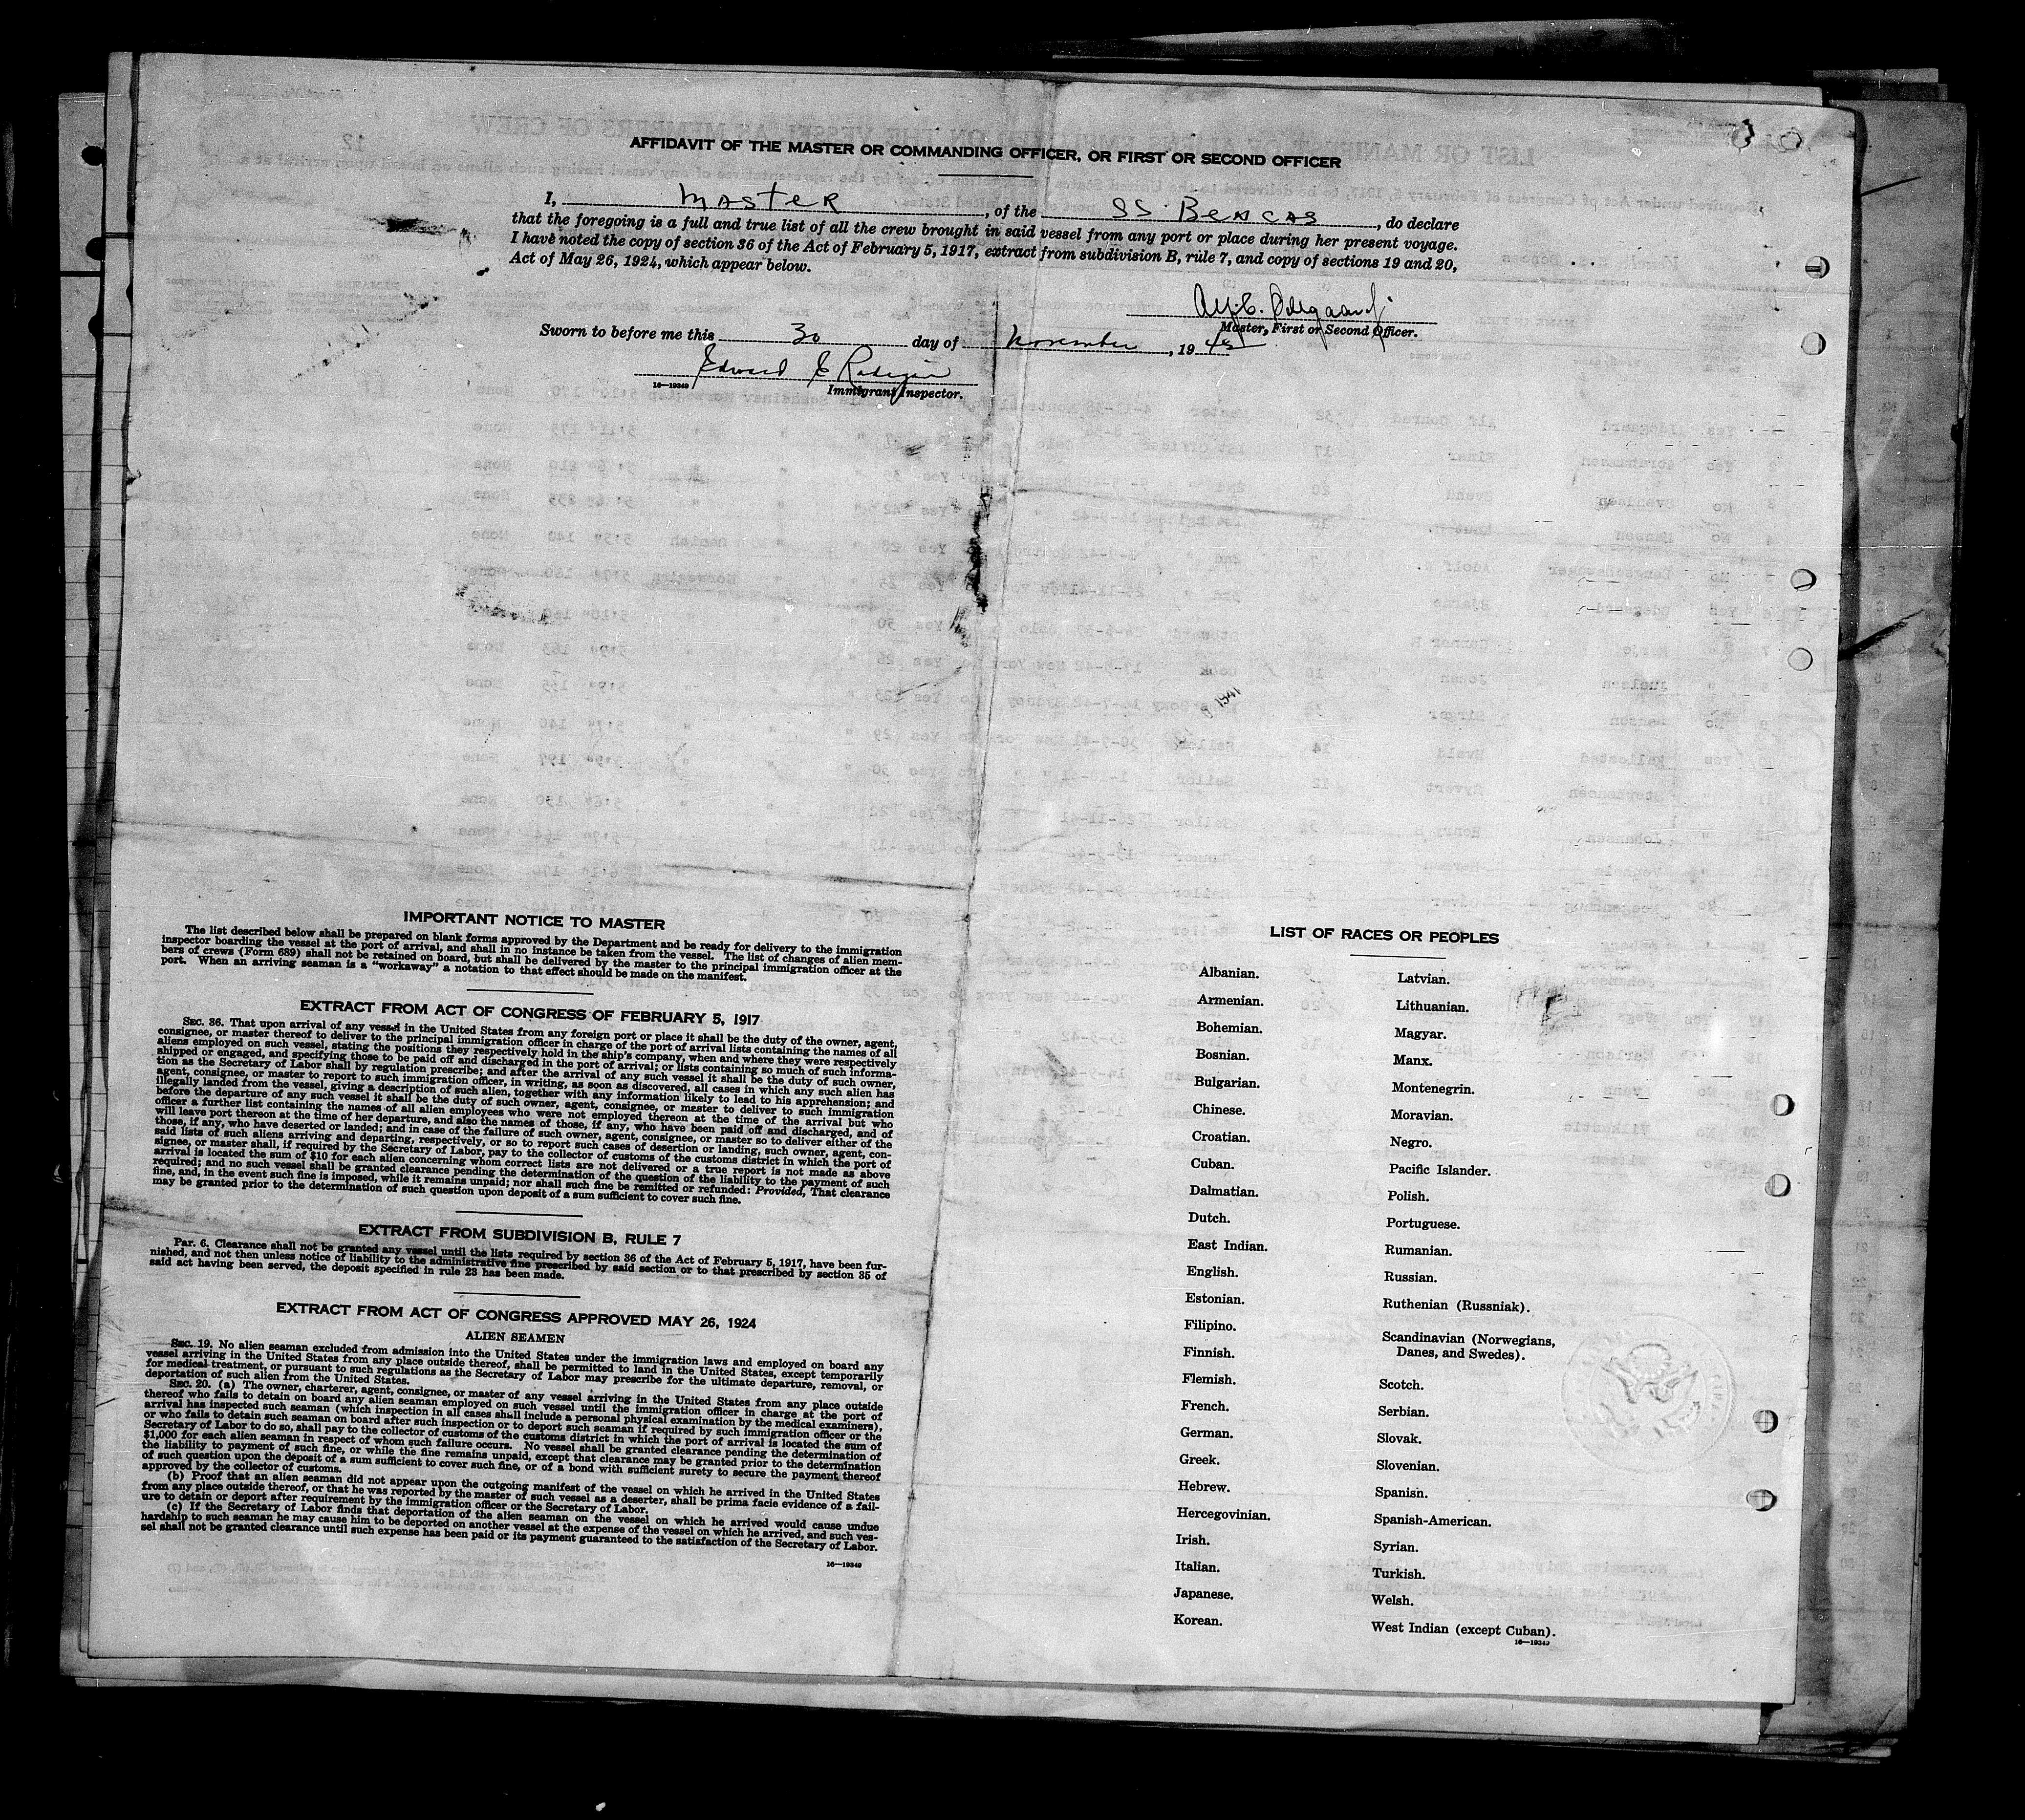 AFFIDAVIT OF THE MASTER OR COMMANDING OFFICER, OR FIRST OR SECOND OFFICER
I, Master, of the SS. Bencas, do declare
that the foregoing is a full and true list of all the crew brought in said vessel from any port or place during her present voyage.
I have noted the copy of section 36 of the Act of February 5, 1917, extract from subdivision B, rule 7, and copy of sections 19 and 20,
Act of May 26, 1924, which appear below.
Master, First or Second Officer.
Sworn to before me this 30 day of November, 19
Edward E
16—19349
Immigrant Inspector.
IMPORTANT NOTICE TO MASTER
The list described below shall be prepared on blank forms approved by the Department and be ready for delivery to the immigration
inspector boarding the vessel at the port of arrival, and shall in no instance be taken from the vessel. The list of changes of alien mem-
bers of crews (Form 689) shall not be retained on board, but shall be delivered by the master to the principal immigration officer at the
port. When an arriving seaman is a "workaway" a notation to that effect should be made on the manifest.
EXTRACT FROM ACT OF CONGRESS OF FEBRUARY 5, 1917
SEC. 36. That upon arrival of any vessel in the United States from any foreign port or place it shall be the duty of the owner, agent,
consignee, or master thereof to deliver to the principal immigration officer in charge of the port of arrival lists containing the names of all
aliens employed on such vessel, stating the positions they respectively hold in the ship's company, when and where they were respectively
shipped or engaged, and specifying those to be paid off and discharged in the port of arrival; or lists containing so much of such informa-
tion as the Secretary of Labor shall by regulation prescribe; and after the arrival of any such vessel it shall be the duty of such owner,
agent, consignee, or master to report to such immigration officer, in writing, as soon as discovered, all cases in which any such alien has
illegally landed from the vessel, giving a description of such alien, together with any information likely to lead to his apprehension; and
before the departure of any such vessel it shall be the duty of such owner, agent, consignee, or master to deliver to such immigration
officer a further list containing the names of all alien employees who were not employed thereon at the time of the arrival but who
will leave port thereon at the time of her departure, and also the names of those, if any, who have been paid off and discharged, and of
those, if any, who have deserted or landed; and in case of the failure of such owner, agent, consignee, or master so to deliver either of the
said lists of such aliens arriving and departing, respectively, or so to report such cases of desertion or landing, such owner, agent, con-
signee, or master shall, if required by the Secretary of Labor, pay to the collector of customs of the customs district in which the port of
arrival is located the sum of $10 for each alien concerning whom correct lists are not delivered or a true report is not made as above
required; and no such vessel shall be granted clearance pending the determination of the question of the liability to the payment of such
fine, and, in the event such fine is imposed, while it remains unpaid; nor shall such fine be remitted or refunded: Provided, That clearance
may be granted prior to the determination of such question upon deposit of a sum sufficient to cover such fine.
EXTRACT FROM SUBDIVISION B, RULE 7
Par. 6. Clearance shall not be granted any vessel until the lists required by section 36 of the Act of February 5, 1917, have been fur-
nished, and not then unless notice of liability to the administrative fine prescribed by said section or to that prescribed by section 35 of
said act having been served, the deposit specified in rule 23 has been made.
EXTRACT FROM ACT OF CONGRESS APPROVED MAY 26, 1924
ALIEN SEAMEN
SEC. 19. No alien seaman excluded from admission into the United States under the immigration laws and employed on board any
vessel arriving in the United States from any place outside thereof, shall be permitted to land in the United States, except temporarily
for medical treatment, or pursuant to such regulations as the Secretary of Labor may prescribe for the ultimate departure, removal, or
deportation of such alien from the United States.
SEC. 20. (a) The owner, charterer, agent, consignee, or master of any vessel arriving in the United States from any place outside
thereof who fails to detain on board any alien seaman employed on such vessel until the immigration officer in charge at the port of
arrival has inspected such seaman (which inspection in all cases shall include a personal physical examination by the medical examiners),
or who fails to detain such seaman on board after such inspection or to deport such seaman if required by such immigration officer or the
Secretary of Labor to do so, shall pay to the collector of customs of the customs district in which the port of arrival is located the sum of
$1,000 for each alien seaman in respect of whom such failure occurs. No vessel shall be granted clearance pending the determination of
the liability to payment of such fine, or while the fine remains unpaid, except that clearance may be granted prior to the determination
of such question upon the deposit of a sum sufficient to cover such fine, or of a bond with sufficient surety to secure the payment thereof
approved by the collector of customs.
(b) Proof that an alien seaman did not appear upon the outgoing manifest of the vessel on which he arrived in the United States
from any place outside thereof, or that he was reported by the master of such vessel as a deserter, shall be prima facie evidence of a fail-
ure to detain or deport after requirement by the immigration officer or the Secretary of Labor.
(c) If the Secretary of Labor finds that deportation of the alien seaman on the vessel on which he arrived would cause undue
hardship to such seaman he may cause him to be deported on another vessel at the expense of the vessel on which he arrived, and such ves-
sel shall not be granted clearance until such expense has been paid or its payment guaranteed to the satisfaction of the Secretary of Labor.
16—19349
LIST OF RACES OR PEOPLES
Albanian.
Armenian.
Bohemian.
Bosnian.
Bulgarian.
Chinese.
Croatian.
Cuban.
Dalmatian.
Dutch.
East Indian.
English.
Estonian.
Filipino.
Finnish.
Flemish.
French.
German.
Greek.
Hebrew.
Hercegovinian.
Irish.
Italian.
Japanese.
Korean.
Latvian.
Lithuanian.
Magyar.
Manx.
Montenegrin.
Moravian.
Negro.
Pacific Islander.
Polish.
Portuguese.
Rumanian.
Russian.
Ruthenian (Russniak).
Scandinavian (Norwegians,
Danes, and Swedes).
Scotch.
Serbian.
Slovak.
Slovenian.
Spanish.
Spanish-American.
Syrian.
Turkish.
Welsh.
West Indian (except Cuban).
16—19349